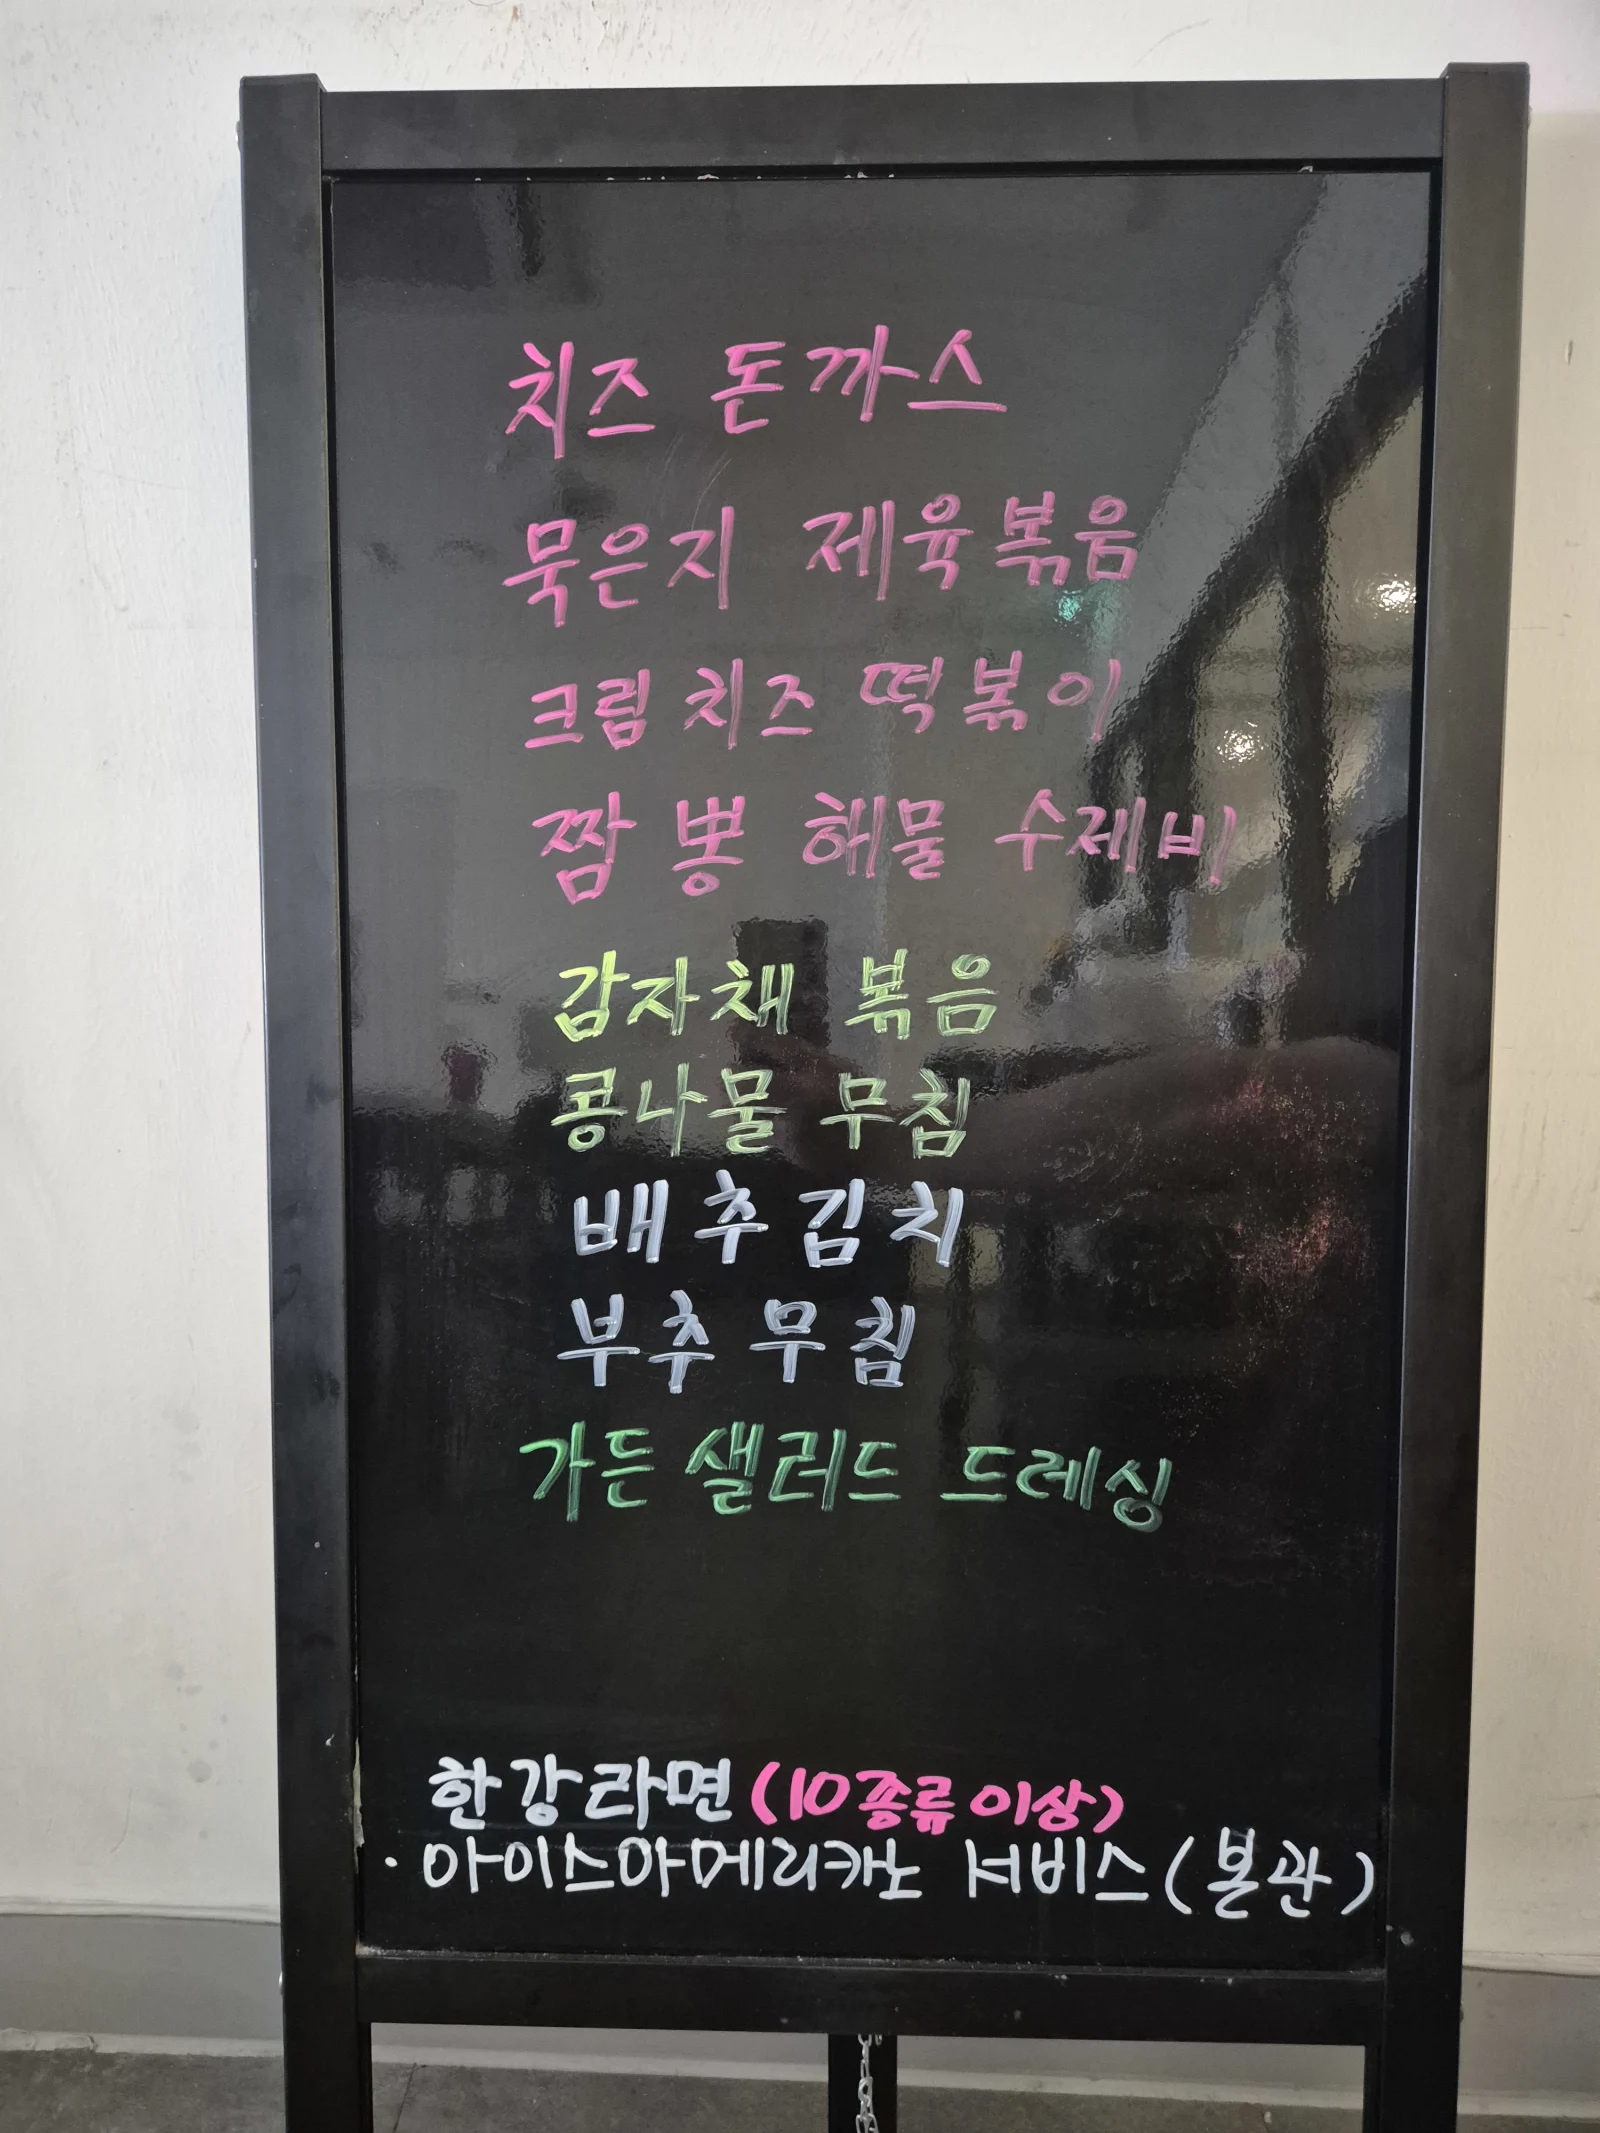 치즈 돈까스
묵은지 제육볶음
크림치즈 떡볶이
짬뽕 해물 수제비
감자채 볶음
콩나물 무침
배추김치
부추무침
가든 샐러드 드레싱
한강라면 (10종류이상)
· 아이스아메리카노 서비스 (본관)